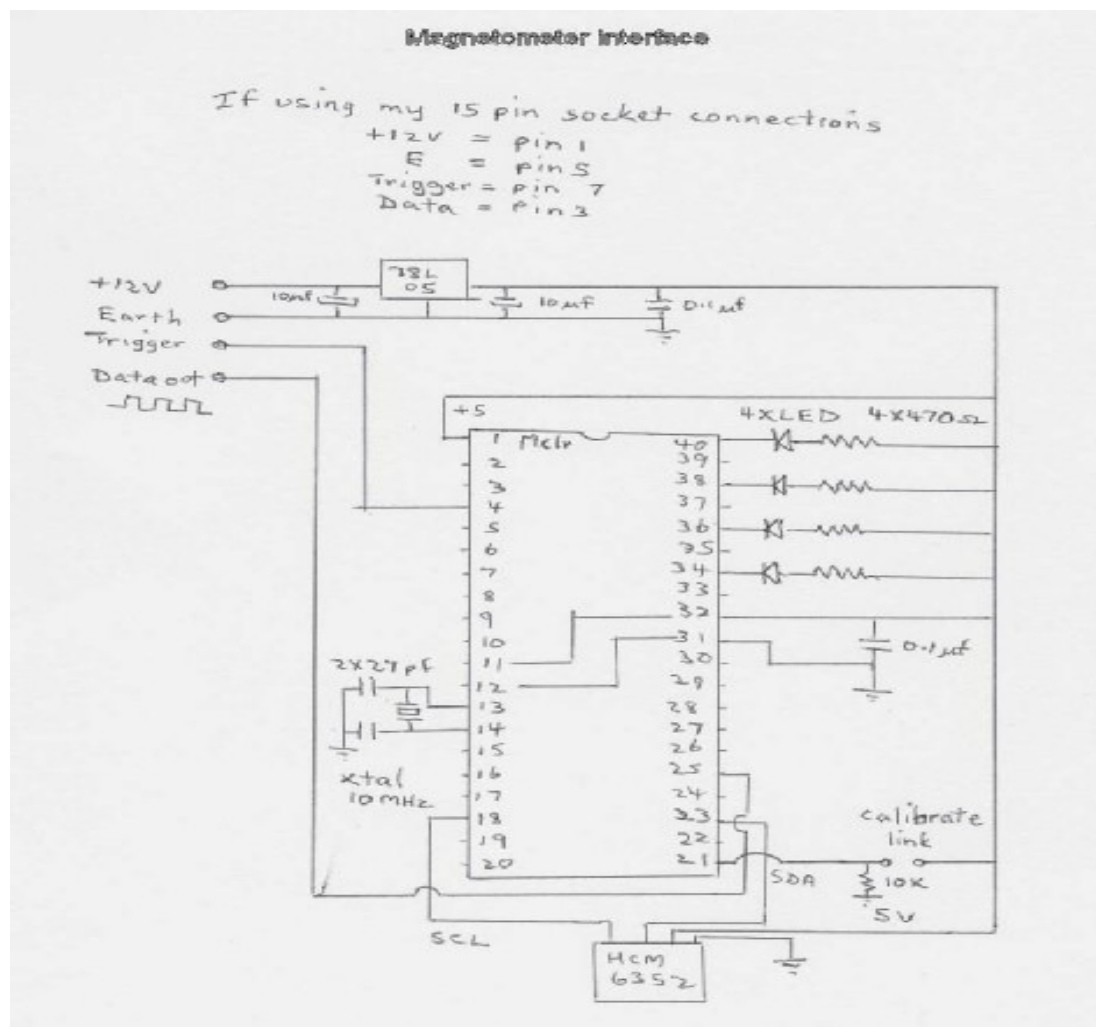 Magnetometer Interface
If using my 15 pin socket connections
+12V = pin 1
E = pin 5
Trigger = pin 7
Data = Pin 3
+12V
78L
05
10µf
10µf
0.1µf
Earth
Trigger
Data out
+5
4XLED 4X470Ω
Mclr
1
2
3
4
5
6
7
8
9
10
11
12
13
14
15
16
17
18
19
20
40
39
38
37
36
35
34
33
32
31
30
29
28
27
26
25
24
23
22
21
0.1µf
2X27pf
xtal
10MHz
calibrate
link
SDA
10K
5V
SCL
HCM
6352